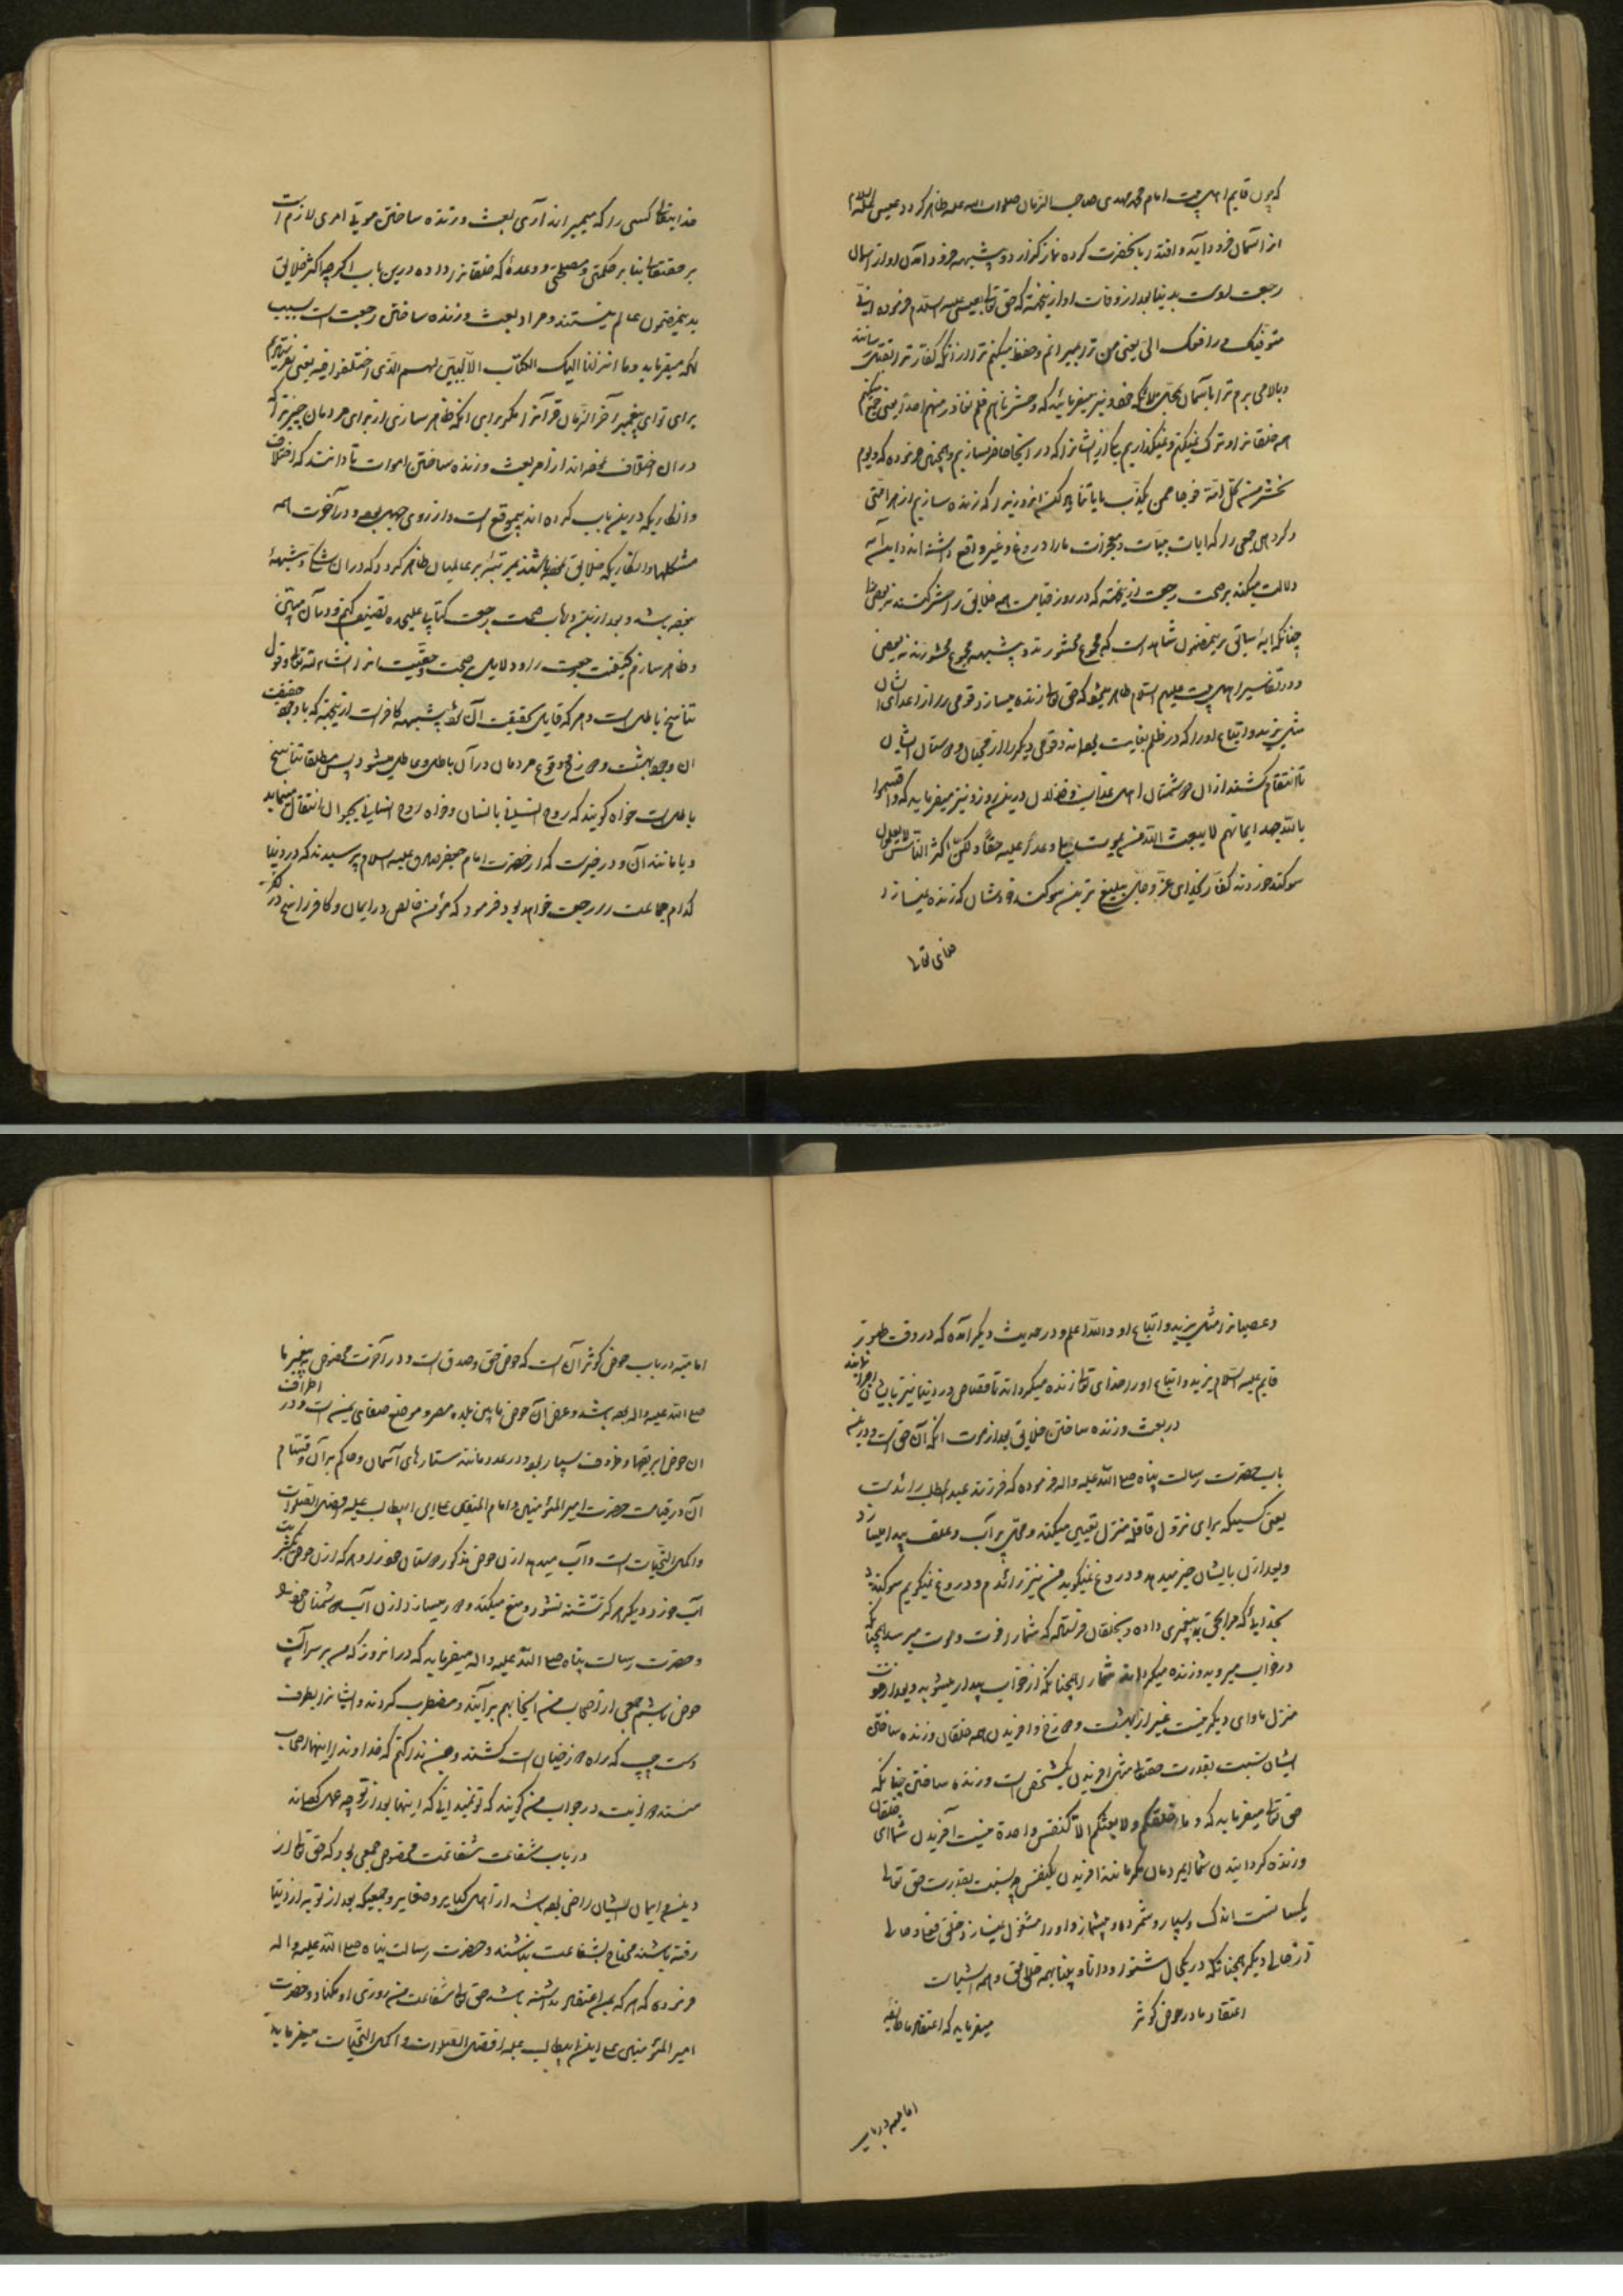 که چون قایم اهل بیت امام محمد مهدی صاحب الزمان صلوات الله علیه ظاهر کردد عیسی علیه السلام
از آسمان فرود آید و اقتدا بآنحضرت کرده نماز کزارد و بیشبهه فرود آمدن او از آسمان
رجعت اوست بدنیا بعد از وفات او از انجهته که حق تعالی بعیسی علیه السلام فرموده انی
متوفیک و رافعک الی یعنی من ترا میرانم و حفظ میکنم ترا از آنکه کفار ترا بقتل رسانند
و بالا می برم ترا بآسمان بمحل ملائکه خود و نیز میفرماید که و حشرناهم فلم نغادر منهم احدا یعنی جمع میکنم
همه خلقانرا و ترک نمیکنم و نمیکذاریم یکی از ایشانرا که در آنجا حاضر نسازیم و همچنین فرموده که و یوم
نحشر من کل امة فوجا ممن یکذب بآیاتنا یاد کن انروزیرا که زنده سازیم از هر امتی
و کروهی جمعی را که آیات بینات و معجزات ما را دروغ و غیر واقع دانسته اند و این آیه
دلالت میکند بر صحت رجعت از انجهته که در روز قیامت همه خلایق را حشر کنند نه بعضی را
چنانکه آیهٔ سابق بر ینمضمون شاهد است که مجموع محشورند و بیشبهه مجموع محشورند نه بعضی
و در تفاسیر اهل بیت علیهم السلام ظاهر میشود که حق تعالی زنده میسازد قومی را از اعدای ایشان
مثل یزید و اتباع او را که در ظلم بغایت بوده اند و قومی دیکر را از محبان و دوستان ایشان
تا انتقام کشند از آن دشمنان اهل عذاب و ضلال درین روز و نیز میفرماید که و اقسموا
بالله جهد ایمانهم لا یبعث الله من یموت بلی وعدا علیه حقا و لکن اکثر الناس لا یعلمون
سوکند خوردند کفار بخدای عز و جل بلیغ ترین سوکند خودشان که زنده نمیسازد
خدای تعالی
خدایتعالی کسی را که میمیراند آری بعث و زنده ساختن موتی امری لازم است
بر حقتعالی بنابر حکمتی و مصلحتی و وعدهٔ که خلقانرا داده درین باب اکرچه اکثر خلایق
بدینمضمون عالم نیستند و مراد ببعث و زنده ساختن رجعت است بسبب
آنکه میفرماید و ما انزلنا الیک الکتاب الا لتبین لهم الذی اختلفوا فیه یعنی نفرستادیم
برای تو ای پیغمبر آخر الزمان قرآنرا مکر برای آنکه ظاهر سازی از برای مردمان چیزیرا که
در آن اختلاف نموده اند از امر بعث و زنده ساختن اموات تا دانند که اختلاف
و انکاریکه درین باب کرده اند بیموقع است و از روی جهل بوده و در آخرت همه
مشکلها و انکاریکه خلایق نموده باشند بمرتبهٔ بر عالمیان ظاهر کردد که در آن شکی و شبههٔ
نبوده باشد و بعد ازین در باب صحت رجعت کتابی علیحده تصنیف کنم و در آن مبین
و ظاهر سازم کیفیت رجعت را و دلایل صحت و حقیت آنرا انشاء الله تعالی و قول
تناسخ باطل است و هر که قایل حقیقت آن شود بیشبهه کافر است از انجهته که با وجود حقیقت
آن وجود بهشت و دوزخ و وقوع مردمان در آن باطل و عاطل میشود پس مطلقا تناسخ
باطل است خواه کویند که روح انسانی بانسان و خواه روح انسانی بحیوان انتقال مینماید
و یا مانند آن و در خبر است که از حضرت امام جعفر صادق علیه السلام پرسیدند که در دنیا
کدام جماعت را رجعت خواهد بود فرمود که مؤمن خالص در ایمان و کافر راسخ در کفر
و عصیانرا مثل یزید و اتباع او و الله اعلم و در حدیث دیکر آمده که در وقت ظهور
قایم علیه السلام یزید و اتباع او را خدای تعالی زنده میکرداند تا قصاص در دنیا نیز بایشان اجرا یابد
در بعث و زنده ساختن خلایق بعد از موت آنکه آن حق است و درین
باب حضرت رسالت پناه صلی الله علیه و اله فرموده که فرزند عبدالمطلب رائد است
یعنی کسیکه برای نزول قافله منزل تعیین میکند و محل پر آب و علف پیدا میسازد
و بعد از آن بایشان خبر میدهد و دروغ نمیکوید من نیز رائدم و دروغ نمیکویم سوکند
بخدایی که مرا بحق به پیغمبری داده و بخلقان فرستاده که شما را فوت و موت میرسد همچنانکه
در خواب میروید و زنده میکرداند شما را همچنانکه از خواب بیدار میشوید و بعد از موت
منزل و ماوای دیکر نیست غیر از بهشت و دوزخ و آفریدن همه خلقان و زنده ساختن
ایشان نسبت بقدرت حقتعالی مثل آفریدن یکشخص است و زنده ساختن چنانکه
حق تعالی میفرماید که و ما خلقکم و لا بعثکم الا کنفس واحدة نیست آفریدن شما ای خلقان
و زنده کردانیدن شما ایمردمان مکر مانند آفریدن یکنفس چه نسبت بقدرت حق تعالی
یکسانست اندک و بسیار و شمرده و بیشمار و او را مشغول نمیسازد خلق و حالی
از حالی دیکر همچنانکه در یکحال شنوا و دانا و بینا بهمه خلایق و همه اشیاست
اعتقاد ما در حوض کوثر میفرماید که اعتقاد ما طایفهٔ
امامیه در باب
امامیه در باب حوض کوثر آن است که حوض حق و صدق است و در آخرت مخصوص به پیغمبر ما
صلی الله علیه و اله بوده باشد و عرض آن حوض ما بین بلده مصر و موضع صنعای یمن است و در اطراف
آن حوض ابریقها و ظروف بسیار بود در عدد مانند ستارهای آسمان و حاکم بر آن و قسام
آن در قیامت حضرت امیر المؤمنین و امام المتقین علی ابن ابیطالب علیه افضل الصلوات
و اکمل التحیات است و آب میدهد از آن حوض مذکور دوستان خود را و هر که از آن حوض یک شربت
آب خورد دیکر هرکز تشنه نشود و منع میکند و دور میسازد از آن آب دشمنان خود را
و حضرت رسالت پناه صلی الله علیه و اله میفرماید که در آنروز که من بر سر آب
حوض باشم جمعی از اصحاب من آنجا بهم برآیند و مضطرب کردند و ایشانرا بطرف
دست چپ که راه دوزخیان است کشند و من ندا کنم که خداوندا اینها اصحاب
منند در جواب من کویند که تو نمیدانی که اینها بعد از تو چه عمل کرده اند
در باب شفاعت شفاعت مخصوص جمعی بود که حق تعالی از
دین و ایمان ایشان راضی بوده باشد از اهل کبایر و صغایر و جمعیکه بعد از توبه از دنیا
رفته باشند محتاج بشفاعت نباشند و حضرت رسالت پناه صلی الله علیه و اله
فرموده که هر که بمن اعتقاد نداشته باشد حق تعالی شفاعت من روزی او مکناد و حضرت
امیر المؤمنین علی ابن ابیطالب علیه افضل الصلوات و اکمل التحیات میفرماید